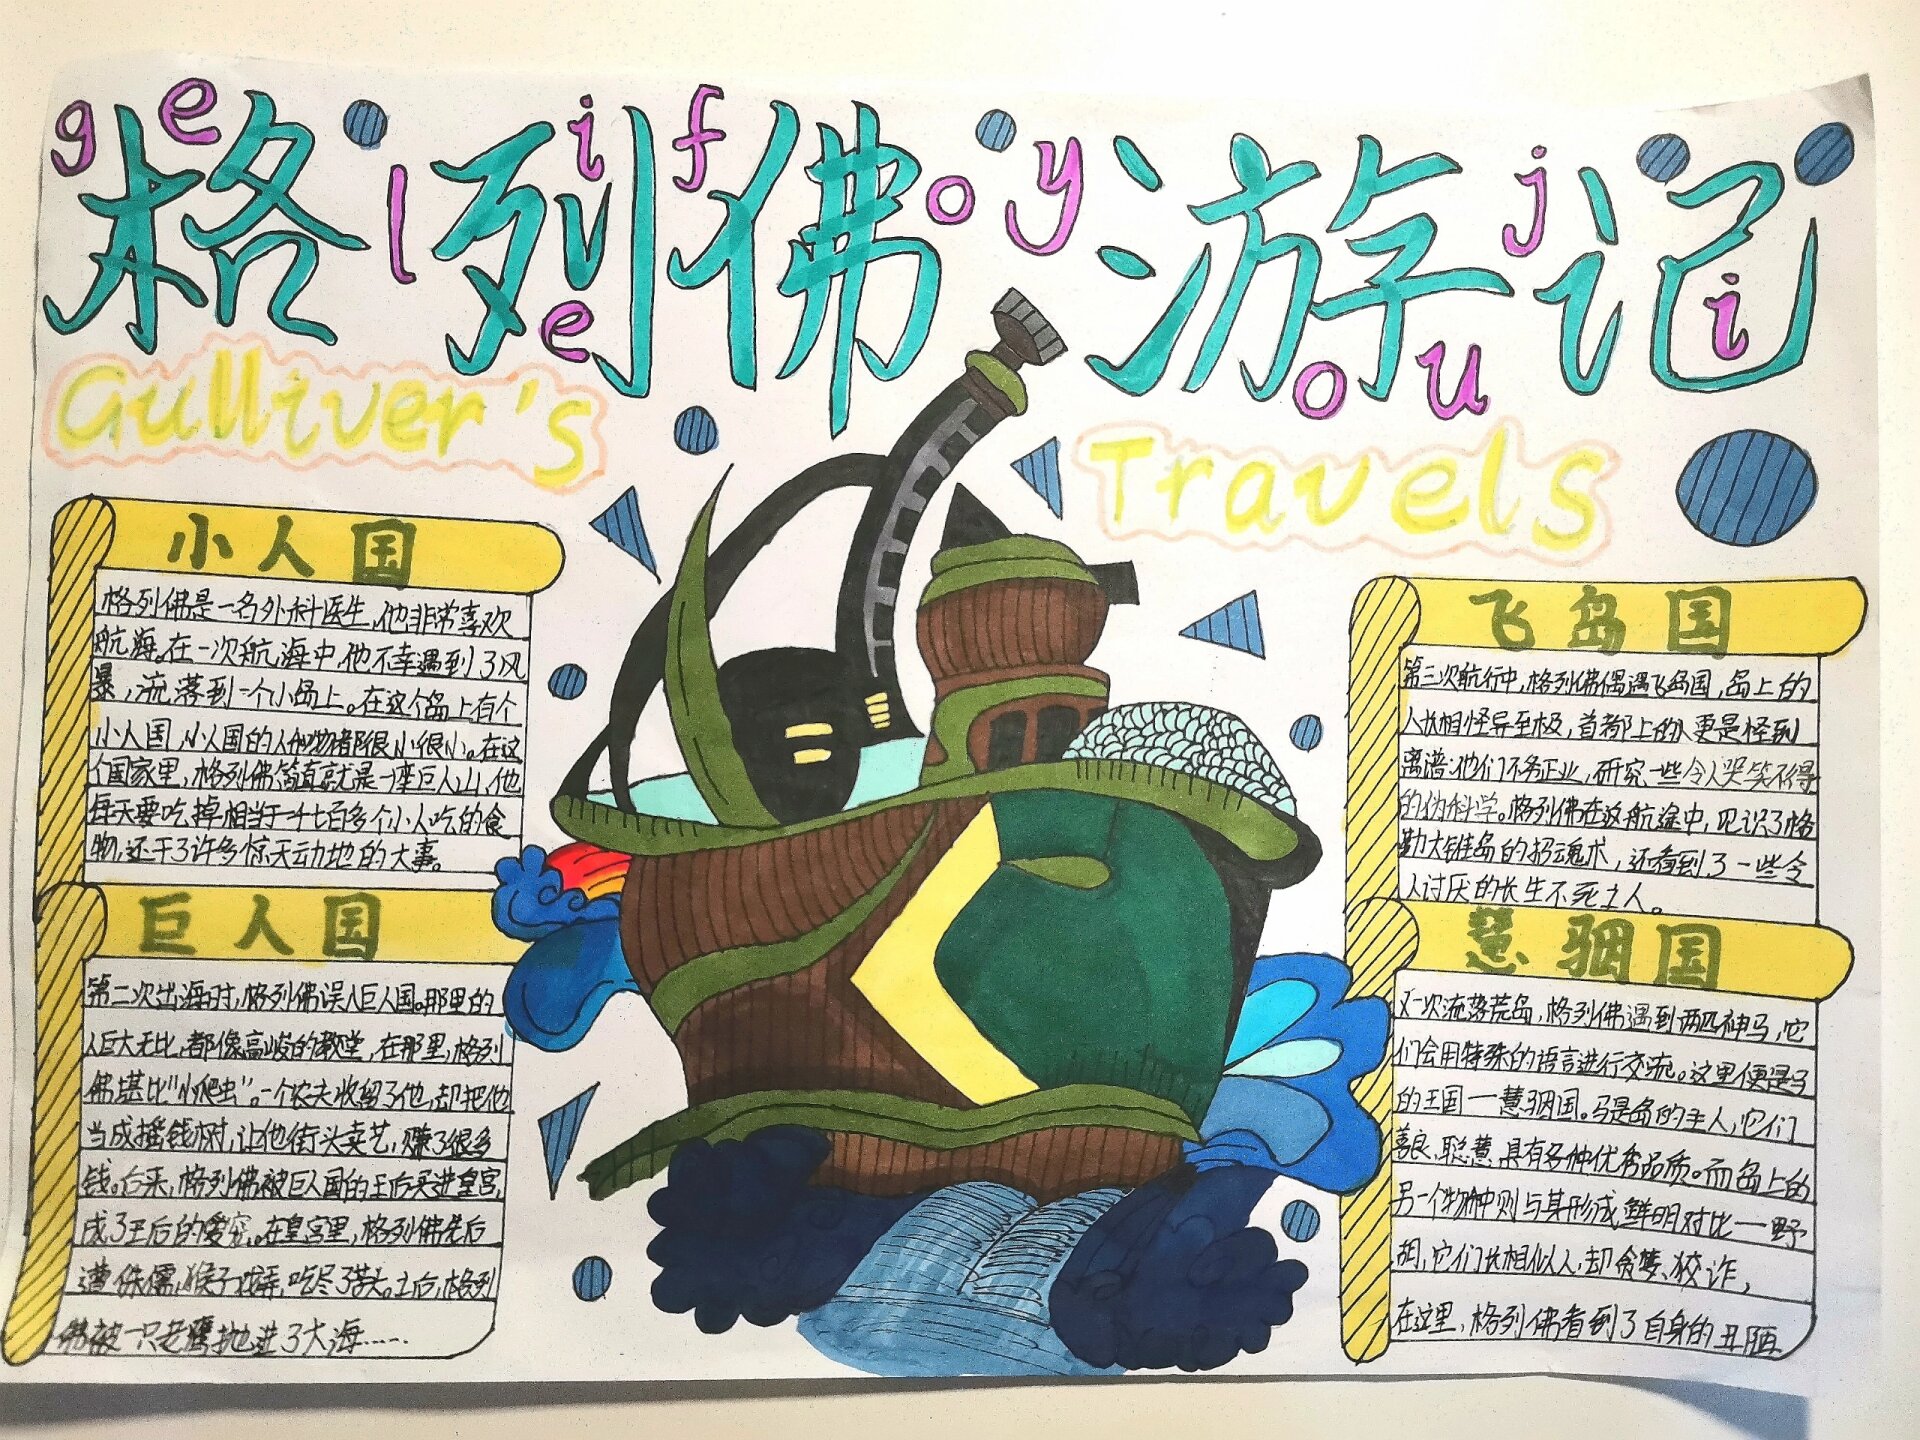 格列佛游记
ge lie fo you ji
Gulliver's
Travels
小人国
格列佛是一名外科医生,他非常喜欢
航海。在一次航海中,他不幸遇到了风
暴,流落到一个小岛上。在这个岛上有个
小人国,小人国的人和物都很小很小。在这
个国家里,格列佛简直就是一座巨人山,他
每天要吃掉相当于一千七百多个小人吃的食
物,还干了许多惊天动地的大事。
巨人国
第二次出海时,格列佛误入巨人国。那里的
人巨大无比,都像高峻的教堂,在那里,格列
佛堪比“小爬虫”。一个农夫收留了他,却把他
当成摇钱树,让他街头卖艺,赚了很多
钱。后来,格列佛被巨人国的王后买进皇宫,
成了王后的爱宠。在皇宫里,格列佛先后
遭侏儒,猴子戏弄,吃尽了苦头。土后,格列
佛被一只老鹰抛进了大海……
飞岛国
第三次航行中,格列佛偶遇飞岛国,岛上的
人长相怪异至极,首都上的人更是怪到
离谱:他们不务正业,研究一些令人哭笑不得
的伪科学。格列佛在这航途中,见识了格
勒大锥岛的招魂术,还看到了一些令
人讨厌的长生不死之人。
慧骃国
又一次流落荒岛,格列佛遇到两匹神马,它
们会用特殊的语言进行交流。这里便是马
的王国一慧骃国。马是岛的主人,它们
善良、聪慧,具有多种优秀品质。而岛上的
另一个物种则与其形成鲜明对比一野
胡,它们长相似人,却贪婪、狡诈,
在这里,格列佛看到了自身的丑陋